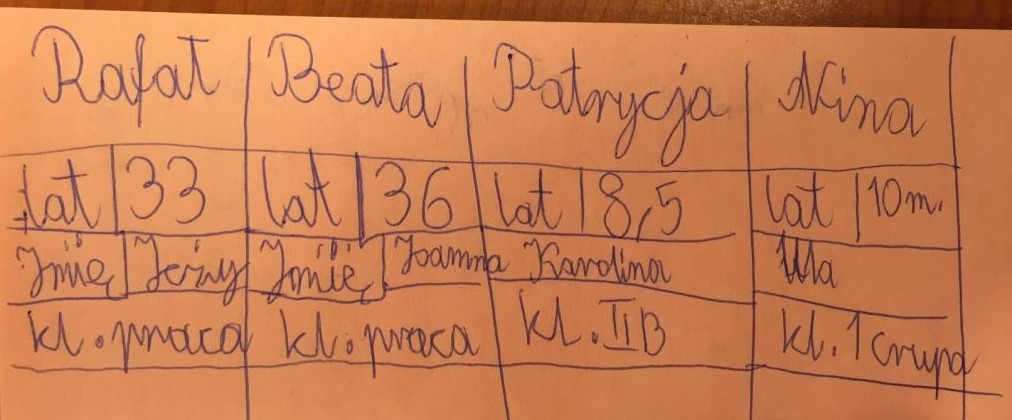 Rafał Beata Patrycja Nina
lat 33 lat 36 lat 8,5 lat 10 m.
Jmię Jerzy Jmię Joamna Karolina Ula
kl. praca kl. praca kl. IIB kl. 1 Crupa